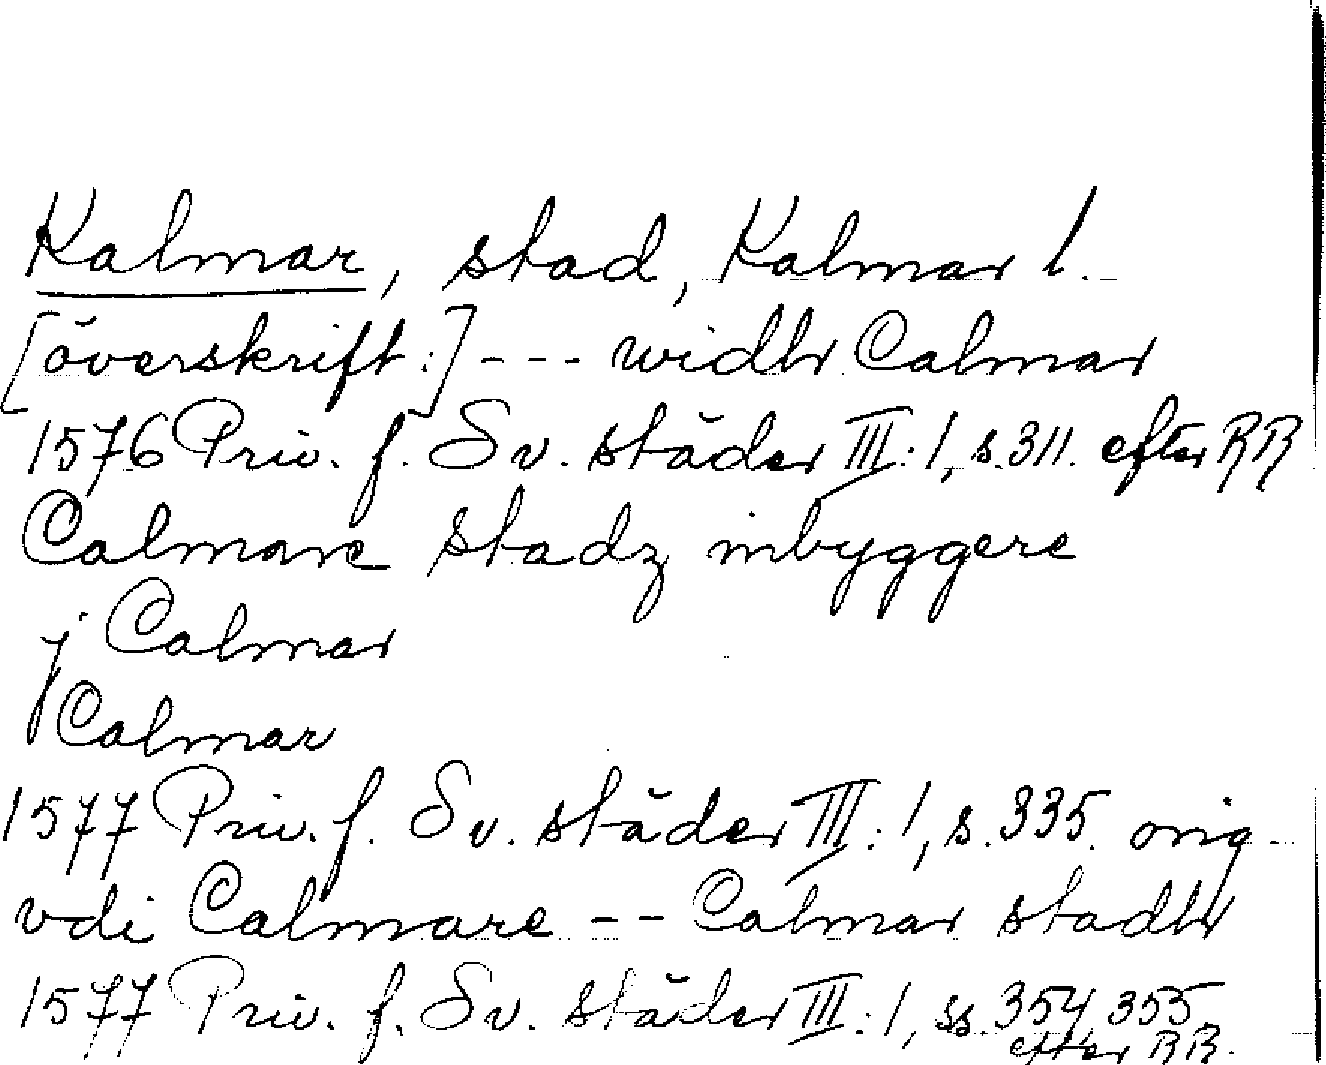 Kalmar, stad, Kalmar l.
[överskrift:] --- widhr Calmar
1576 Priv. f. Sv. städer III:1, s. 311. efter RR
Calmare stadz inbyggere
j Calmar
Calmar
1577 Priv. f. Sv. städer III:1, s. 335. orig.
vdi Calmare -- Calmar stadhr
1577 Priv. f. Sv. städer III:1, ss. 354, 355
efter RR.